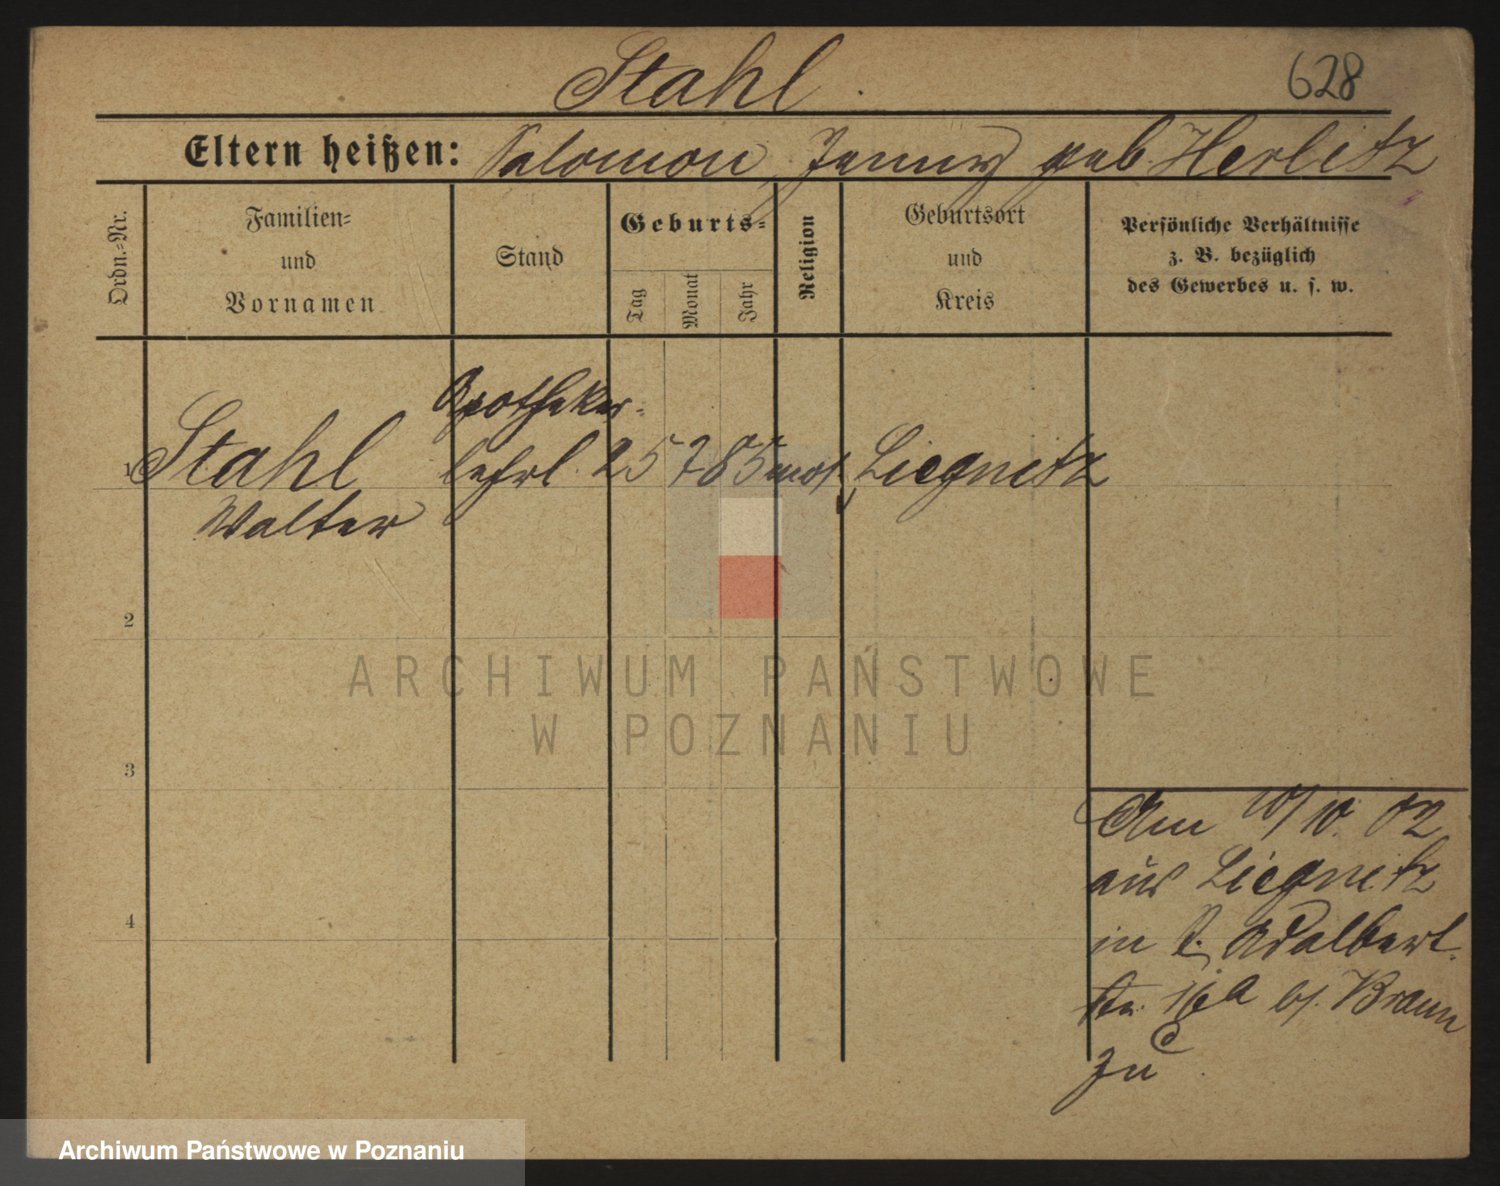 Stahl.
628
Eltern heißen: Salomon, Jenny geb. Herlitz
Ordn.=Nr.
Familien=
und
Vornamen
Stand
Geburts=
Tag
Monat
Jahr
Religion
Geburtsort
und
Kreis
Persönliche Verhältnisse
z. B. bezüglich
des Gewerbes u. s. w.
Apotheker-
1 Stahl lehrl. 25 7 85 mos. Liegnitz
Walter
2
3
4
Am 10/10. 02
aus Liegnitz
in P. Adalbert-
str. 16a b/. Braun
zu
ARCHIWUM PAŃSTWOWE
W POZNANIU
Archiwum Państwowe w Poznaniu